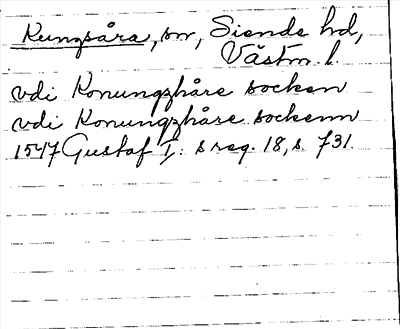 Kungsåra, sn, Siende hd,
Västm. l.
vdi Konungzhåre socken
vdi Konungzhåre sockenn
1547 Gustaf I: s reg. 18, s. 731.